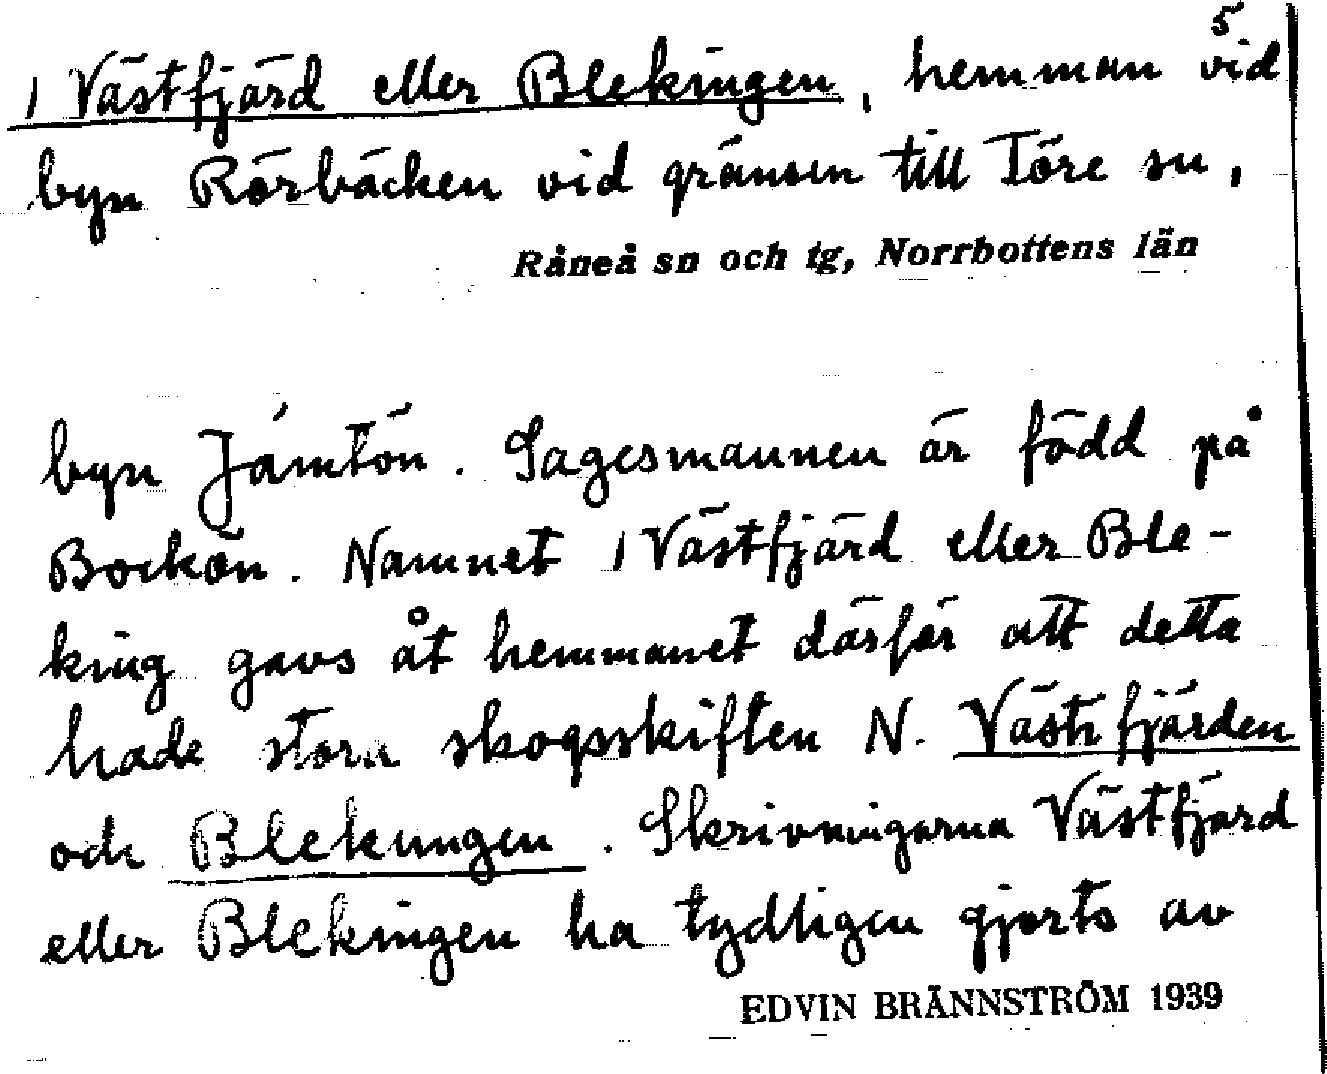 5
1 Västfjärd eller Blekingen, hemman vid
byn Rörbäcken vid gränsen till Töre sn,
Råneå sn och tg, Norrbottens län
byn Jämtön. Sagesmannen är född på
Bockön. Namnet 1 Västfjärd eller Ble-
king gavs åt hemmanet därför att detta
hade stora skogsskiften N. Västifjärden
och Blekungen. Skrivningarna Västfjärd
eller Blekingen ha tydligen gjorts av
EDVIN BRÄNNSTRÖM 1939